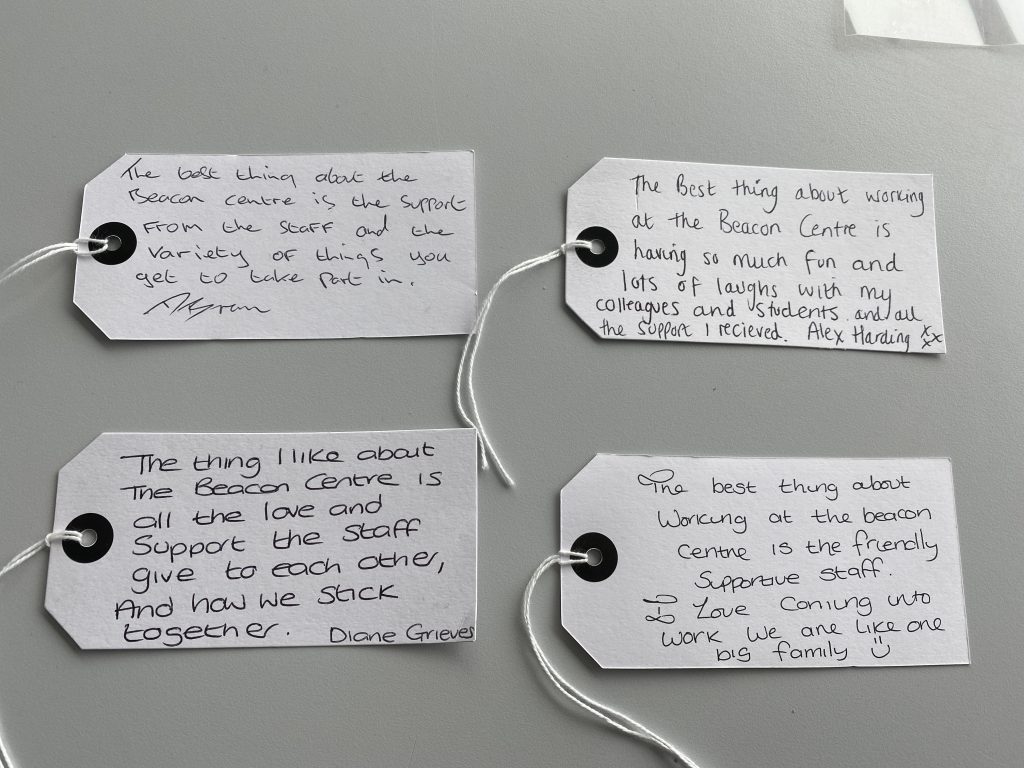 The best thing about the
Beacon centre is the support
From the staff and the
variety of things you
get to take part in.
The Best thing about working
at the Beacon Centre is
having so much fun and
lots of laughs with my
colleagues and students and all
the support I recieved. Alex Harding xxx
The thing I like about
The Beacon Centre is
all the love and
Support the Staff
give to each other,
And how we stick
together. Diane Grieves
The best thing about
Working at the beacon
Centre is the friendly
Supportive staff.
I Love Coming into
work we are like one
big family